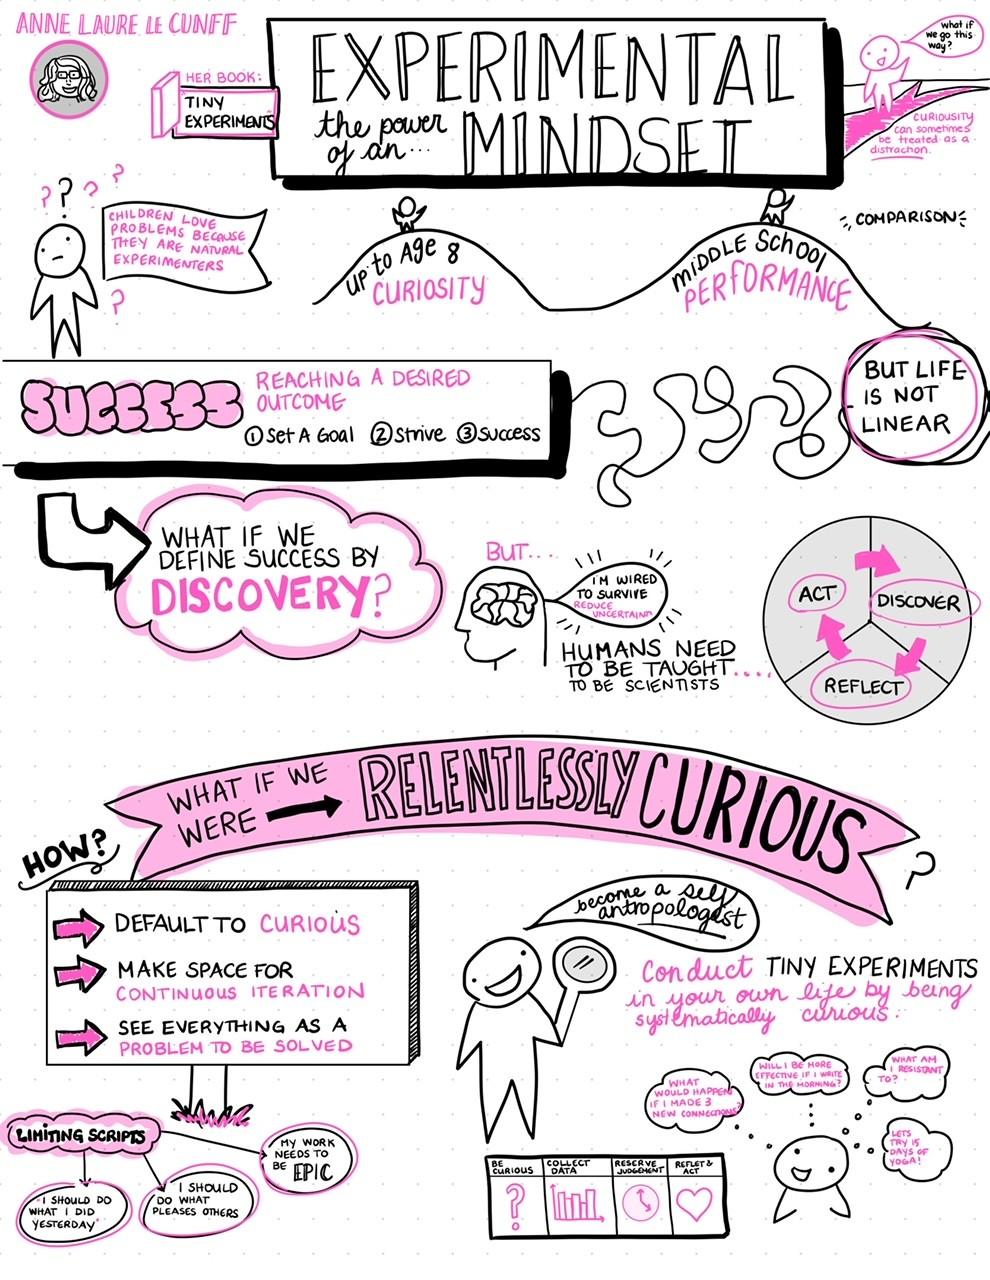 ANNE LAURE LE CUNFF
HER BOOK:
TINY
EXPERIMENTS
EXPERIMENTAL
the power
of an...
MINDSET
what if
we go this
way?
CURIOUSITY
can sometimes
be treated as a
distraction.
? ? ? ?
CHILDREN LOVE
PROBLEMS BECAUSE
THEY ARE NATURAL
EXPERIMENTERS
?
up to Age 8
CURIOSITY
MIDDLE SCHOOL
PERFORMANCE
COMPARISON
SUCCESS
REACHING A DESIRED
OUTCOME
① Set A Goal ② Strive ③ Success
BUT LIFE
IS NOT
LINEAR
WHAT IF WE
DEFINE SUCCESS BY
DISCOVERY?
BUT...
I'M WIRED
TO SURVIVE
REDUCE
UNCERTAINTY
HUMANS NEED
TO BE TAUGHT....
TO BE SCIENTISTS
ACT
DISCOVER
REFLECT
WHAT IF WE
WERE
RELENTLESSLY CURIOUS
?
HOW?
DEFAULT TO CURIOUS
MAKE SPACE FOR
CONTINUOUS ITERATION
SEE EVERYTHING AS A
PROBLEM TO BE SOLVED
become a self
antropologist
Conduct TINY EXPERIMENTS
in your own life by being
systematically curious.
LIMITING SCRIPTS
I SHOULD DO
WHAT I DID
YESTERDAY
I SHOULD
DO WHAT
PLEASES OTHERS
MY WORK
NEEDS TO
BE EPIC
BE
CURIOUS
?
COLLECT
DATA
RESERVE
JUDGEMENT
REFLET &
ACT
WHAT
WOULD HAPPEN
IF I MADE 3
NEW CONNECTIONS?
WILL I BE MORE
EFFECTIVE IF I WRITE
IN THE MORNING?
WHAT AM
I RESISTANT
TO?
LETS
TRY 15
DAYS OF
YOGA!